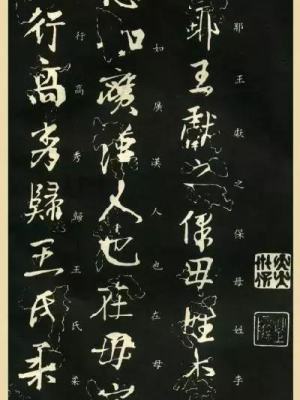 耶王獻之保母姓李
耶王獻之保母姓李
如廣漢人也在母家
如廣漢人也在母
行高秀歸王氏柔
行高秀歸王氏柔